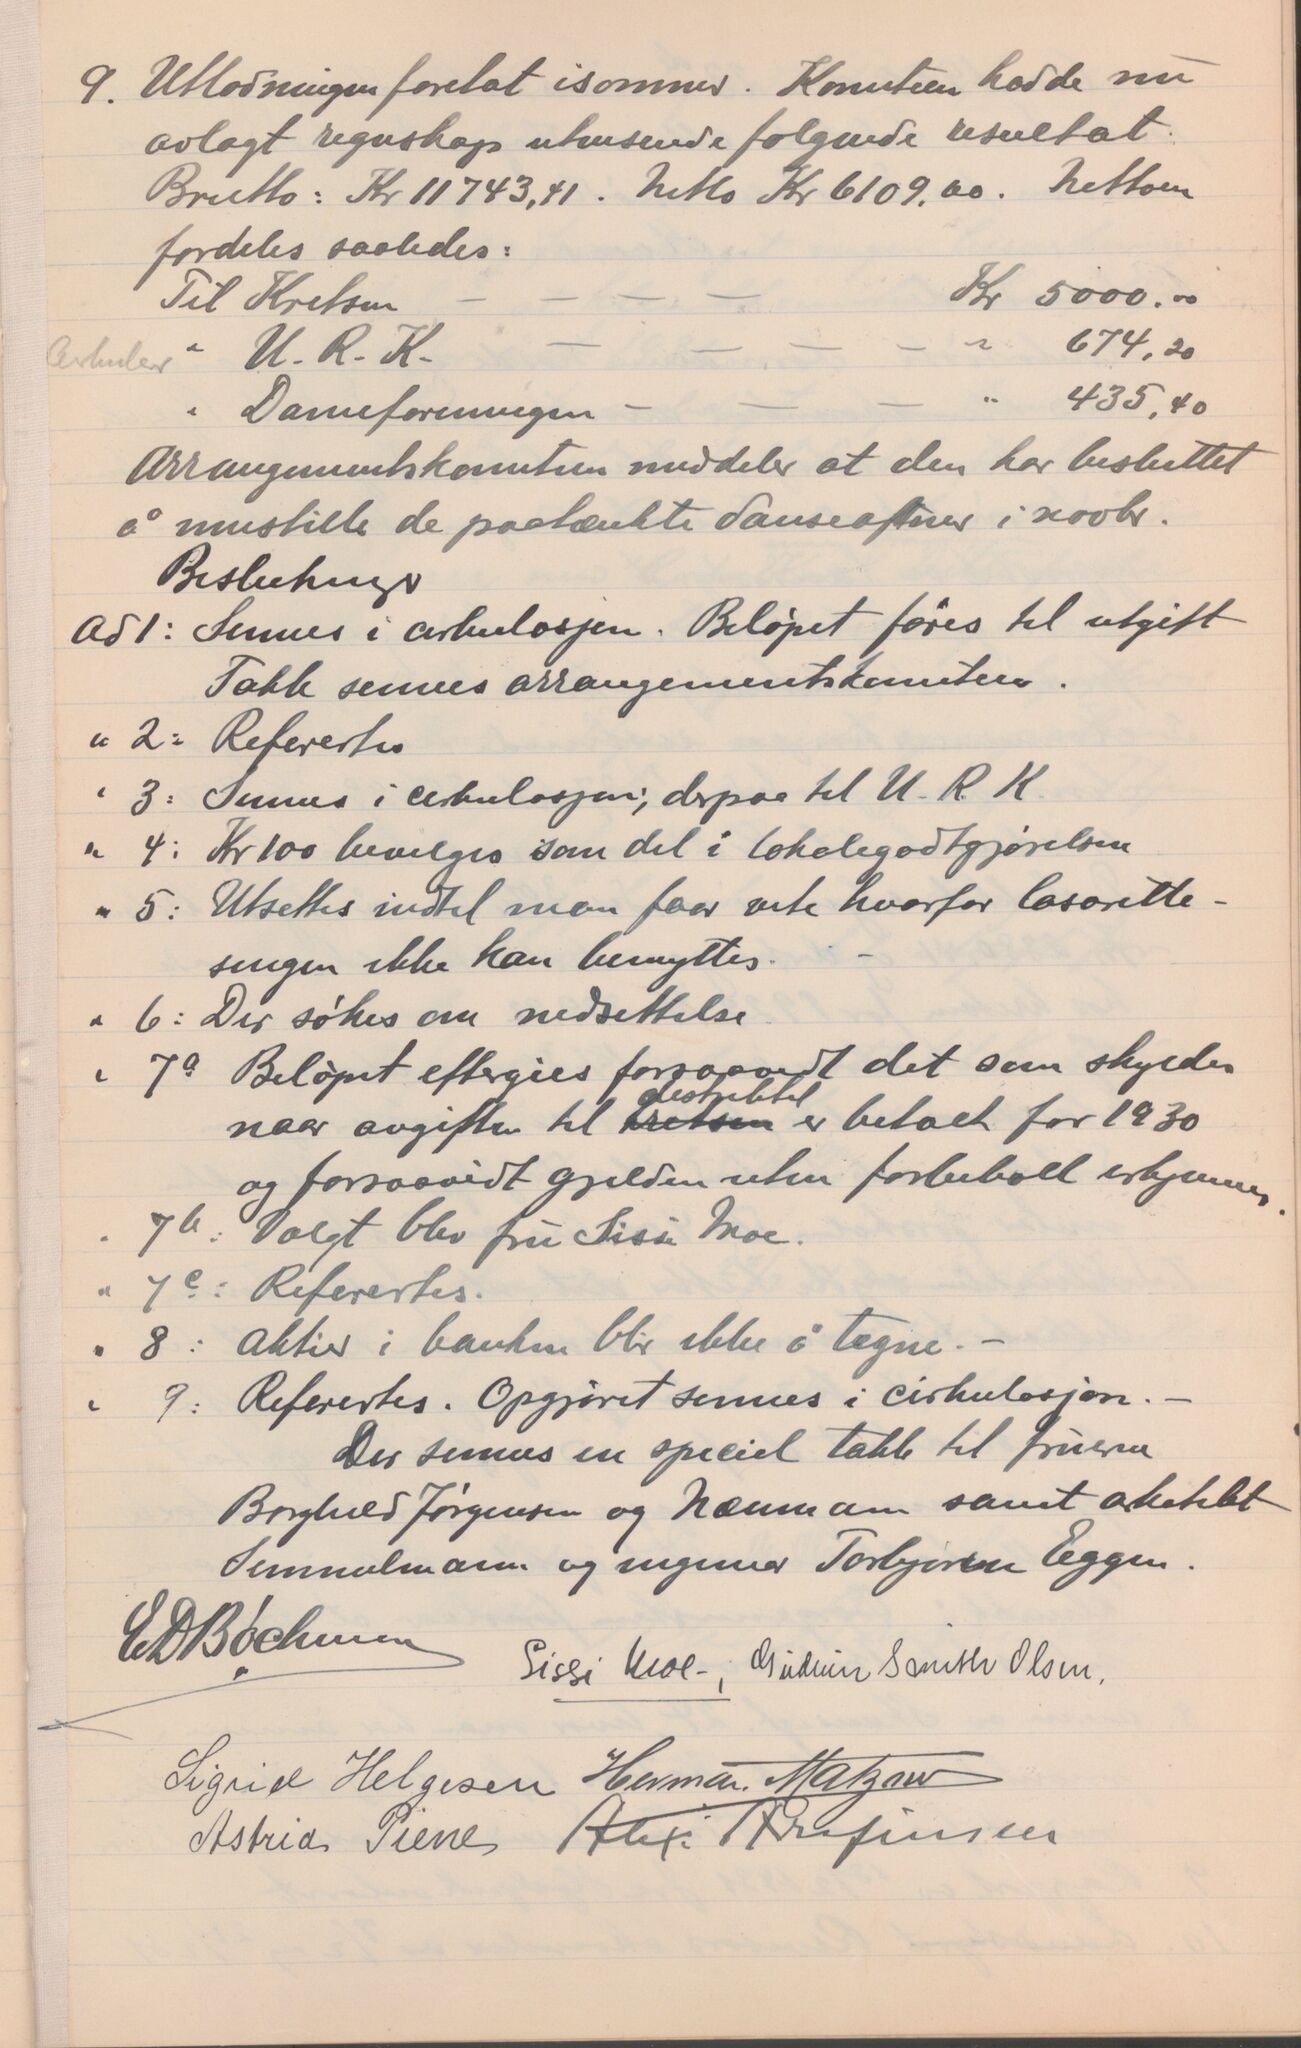 9. Utlodningen foretat isommer. Komiteen hadde nu
avlagt regnskap utvisende følgende resultat:
Brutto: Kr 11743,41. Netto Kr 6109.00. Nettoen
fordeles saaledes:
Til Kretsen — — — — Kr 5000.00
" U. R. K. — — — — " 674,20
" Dameforeningen — — — " 435,40
Arrangementskomiteen meddeler at den har besluttet
å innstille de paatænkte danseaftner i novbr.
Beslutninger
Ad 1: Sennes i cirkulasjon. Beløpet føres til utgift
Takk sennes arrangementskomiteen.
" 2: Refertes
" 3: Sennes i cirkulasjon; derpaa til U. R. K
" 4: Kr 100 bevilges som del i lokalegodtgjørelsen
" 5: Utsettes indtil man faar vite hvorfor lasarett-
sengen ikke kan benyttes. -
" 6: Der søkes om nedsettelse
" 7a Beløpet eftergies forsaavidt det som skyldes
naar avgiften til kretsen distriktet er betalt for 1930
og forsaavidt gjelden uten forbehold erkjennes.
" 7b: Valgt blev fru Sissi Moe.
" 7c: Refertes.
" 8: Aktier i banken blir ikke å tegne. -
" 9: Refertes. Opgjøret sennes i cirkulasjon. -
Der sennes en speciel takk til fruerne
Borghild Jørgensen og Næumann samt arkitekt
Semmelmann og ingeniør Torbjørn Eggen.
E D Bøchmann
Sissi Moe -, Gudrun Smith Olsen.
Sigrid Helgesen Herman Matzow
Astrid Piene Alexi